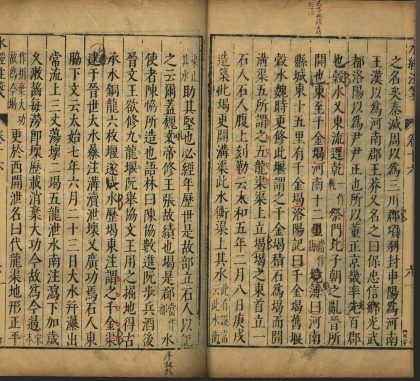 之名矣秦滅周以為三川郡項羽封申陽為河南
王漢以為河南郡王莽又名之曰保忠信鄉光武
都洛陽以為尹尹正也所以董正京畿率先百郡
也穀水又東流逕乾祭門北子朝之亂晉所
開也東至千金堨河南十二縣簿曰河南
縣城東十五里有千金堨洛陽記曰千金堨舊堰
穀水魏時更修此堰謂之千金堨積石為堨而開
溝渠五所謂之五龍渠渠上立堨堨之東首立一
石人石人腹上刻勒云太和五年二月八日庚戌
造築此堨更開溝渠此水衝渠上其水
助其堅也必經年歷世是故部立石人以記
之云爾蓋魏文帝修王張故績也堨是都水
使者陳協所造也語林曰陳協數進阮步兵酒後
晉文王欲修九龍堰阮舉協文王用之掘地得古
承水銅龍六枚堰遂成水歷堨東注謂之千金渠
逮于晉世大水暴注溝瀆泄壞又廣功焉石人東
脇下文云太始七年六月二十三日大水并瀑出
常流上三丈蕩壞二堨五龍泄水南注瀉下加歲
久漱齧每澇即壞歷載消棄大功今故為今遏
更於西開泄名曰代龍渠地形正平